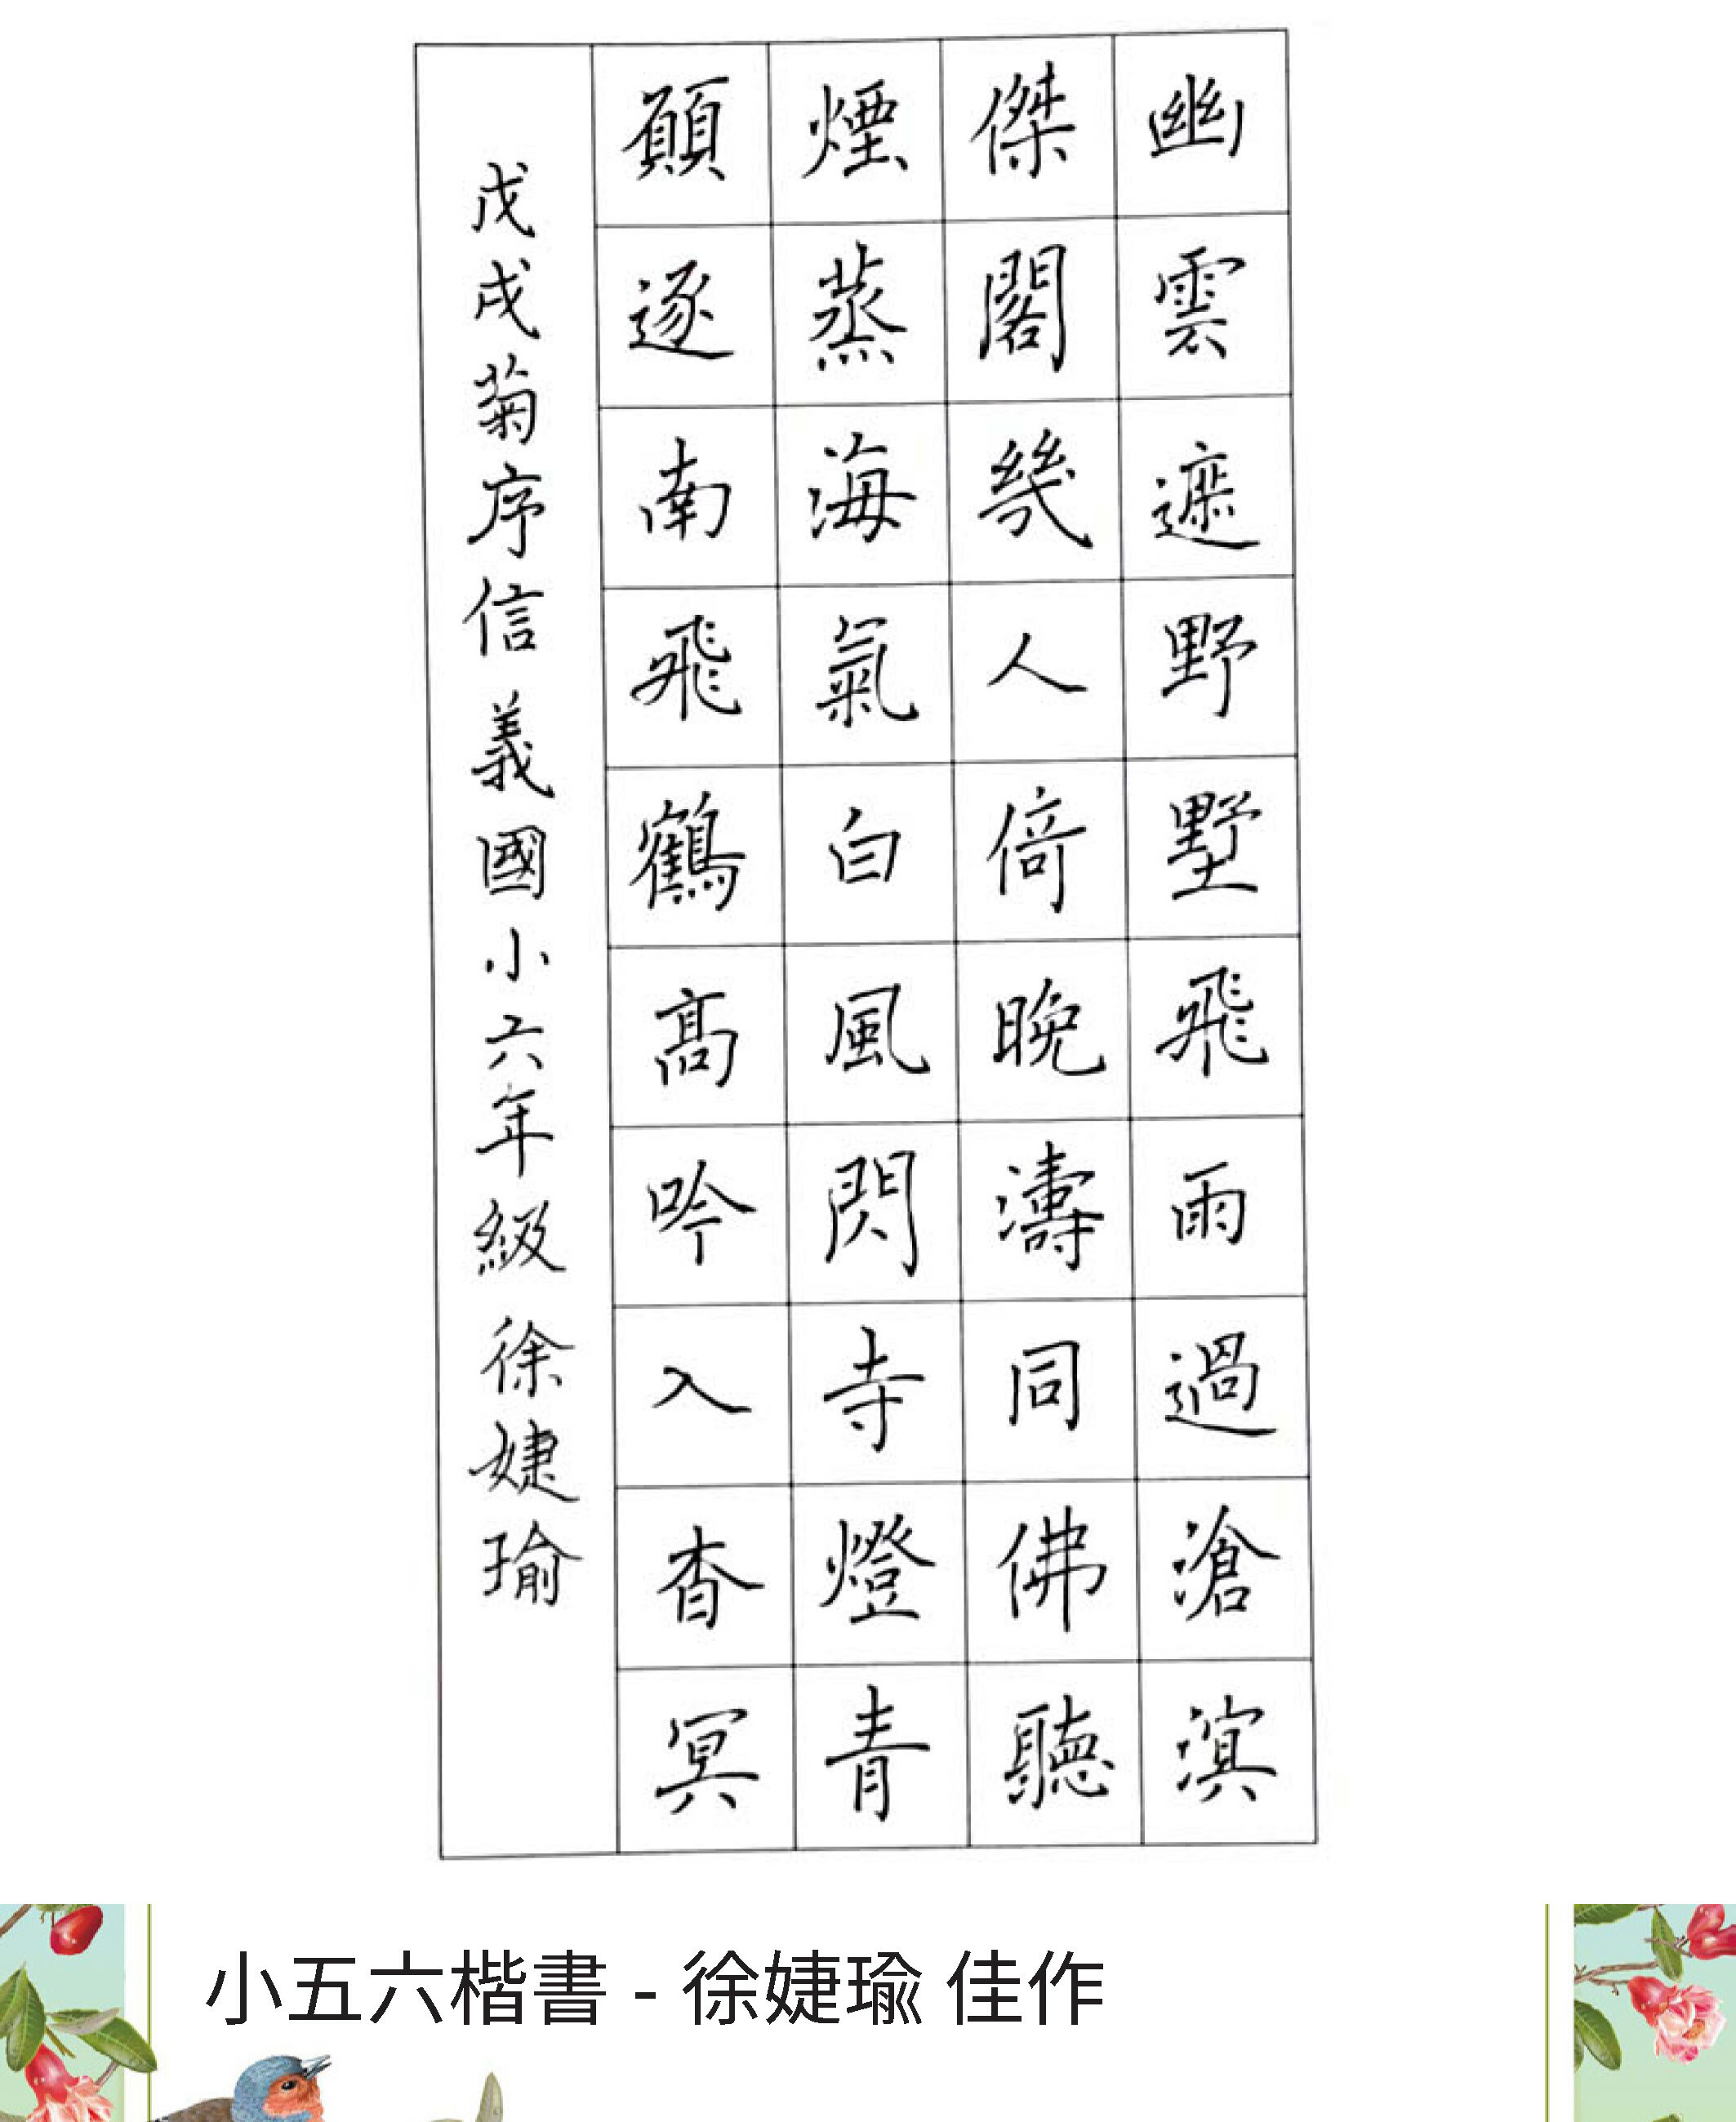 幽雲遮野墅飛雨過滄溟
傑閣幾人倚晚濤同佛聽
煙蒸海氣白風閃寺燈青
願逐南飛鶴高吟入杳冥
戊戌菊序信義國小六年級徐婕瑜
小五六楷書 - 徐婕瑜 佳作